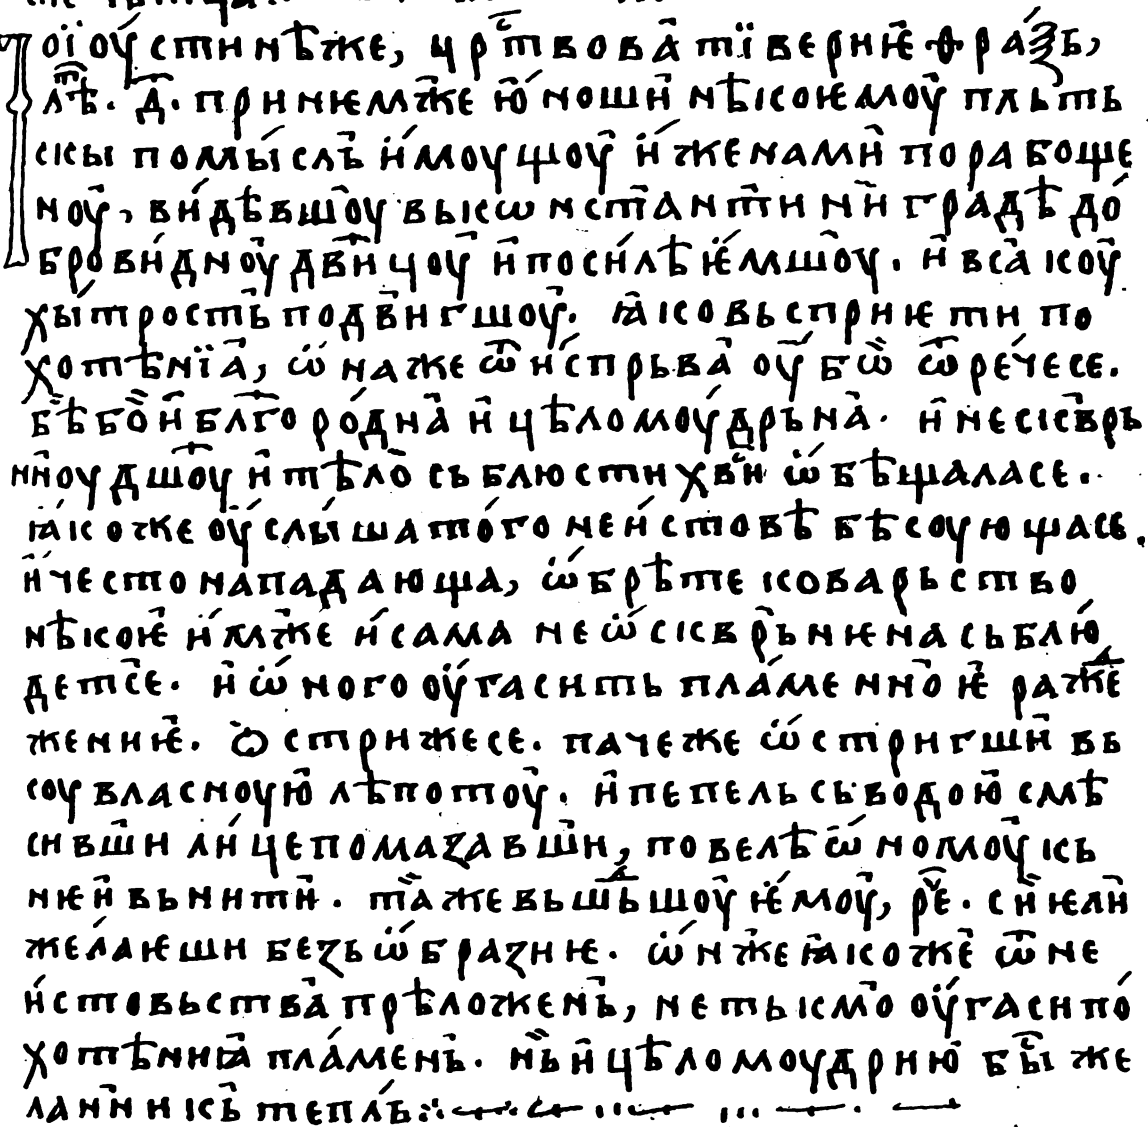 Тоїоу́стинѣже, цр҇твоваⷮ тїверіѥ фраѯь,
лѣⷮ. д҃. приніѥмже ю҆ноши нѣкоѥмоу пльть
скы помы́слъ и҆моущоу и҆женами порабоще
ноу, ви́дѣвшоу вькѡнстантинь градѣ до́
брови́дноу дв҃ицоу и҆поси́лѣѥ҆мшоу. и҆всакоу
хы́трость подвигшоу. ꙗ҆ковьспріѥти по
хотѣнїа, ѡ҆наже ѿи҆спрьва оу҆бѡ ѿре́чесе.
бѣбо и҆бл҃горо́дна и҆ цѣломоу́дрьна. и҆нескврь
нноу дш҃оу и҆ тѣло съблюсти хв҃и ѡ҆бѣщаласе.
ꙗ҆коже оу҆слы́шато́го неи҆стовѣ бѣсоующасе.
и҆често нападающа, ѡ҆брѣте коварьство
нѣкоѥ и҆мже и҆сама неѡ҆сквръніѥна съблю́
детсе. и҆ ѡ҆ного оу҆гасить пла́менноѥ ражⷣе
женіѥ. ѻ҆стрижесе. паче же ѡ҆стригши вь
соу власноую лѣпотоу. и҆пепель сьводою смѣ
сивши ли́це помаꙁавши, повелѣ ѡ҆номоу кь
ніѥи вьнити. таже вьшьⷣшоу ѥ҆моу, реⷱ҇. си ѥли
жела́ѥши беꙁьѡ҆браꙁніѥ. ѡ҆н же ꙗ҆коже ѿ не
и҆стовьства прѣложень, не тькмо оу҆гаси по́
хотѣніꙗ пла́мень. нь и҆ цѣломоудрію бы҇ же
ланникь тепль